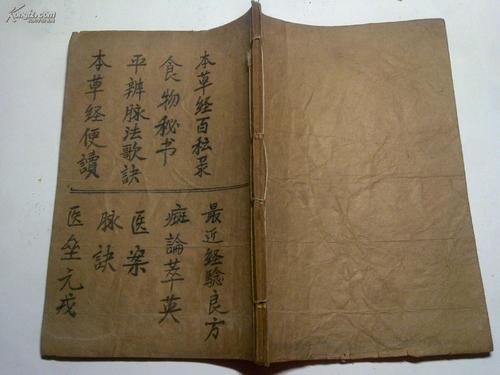 本草经百种录
食物秘书
平辨脉法歌訣
本草经便讀
最近经驗良方
癍論萃英
医案
脉訣
医垒元戎